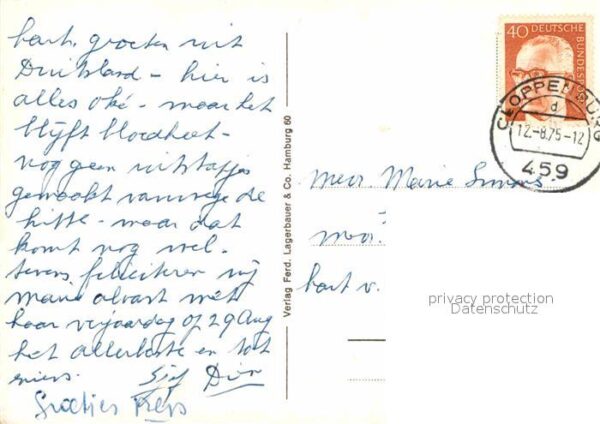 hart. groeten uit
Duitsland - hier is
alles oké - maar het
blijft bloedheet -
nog geen uitstapjes
gemaakt vanwege de
hitte - maar dat
komt nog wel -
tevens feliciteren wij
Marie alvast met
haar verjaardag op 29 Aug
het allerbeste en tot
ziens.
Groetjes Kees
Verlag Ferd. Lagerbauer & Co. Hamburg 60
40 DEUTSCHE BUNDESPOST
CLOPPENBURG
d
12.-8.75-12
459
Mevr. Marie
hart v.
privacy protection
Datenschutz